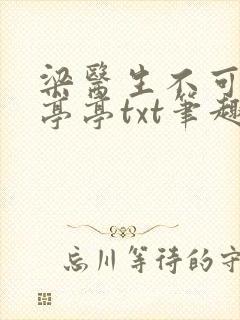 梁醫生不可
亭亭txt筆趣
忘川等待的守